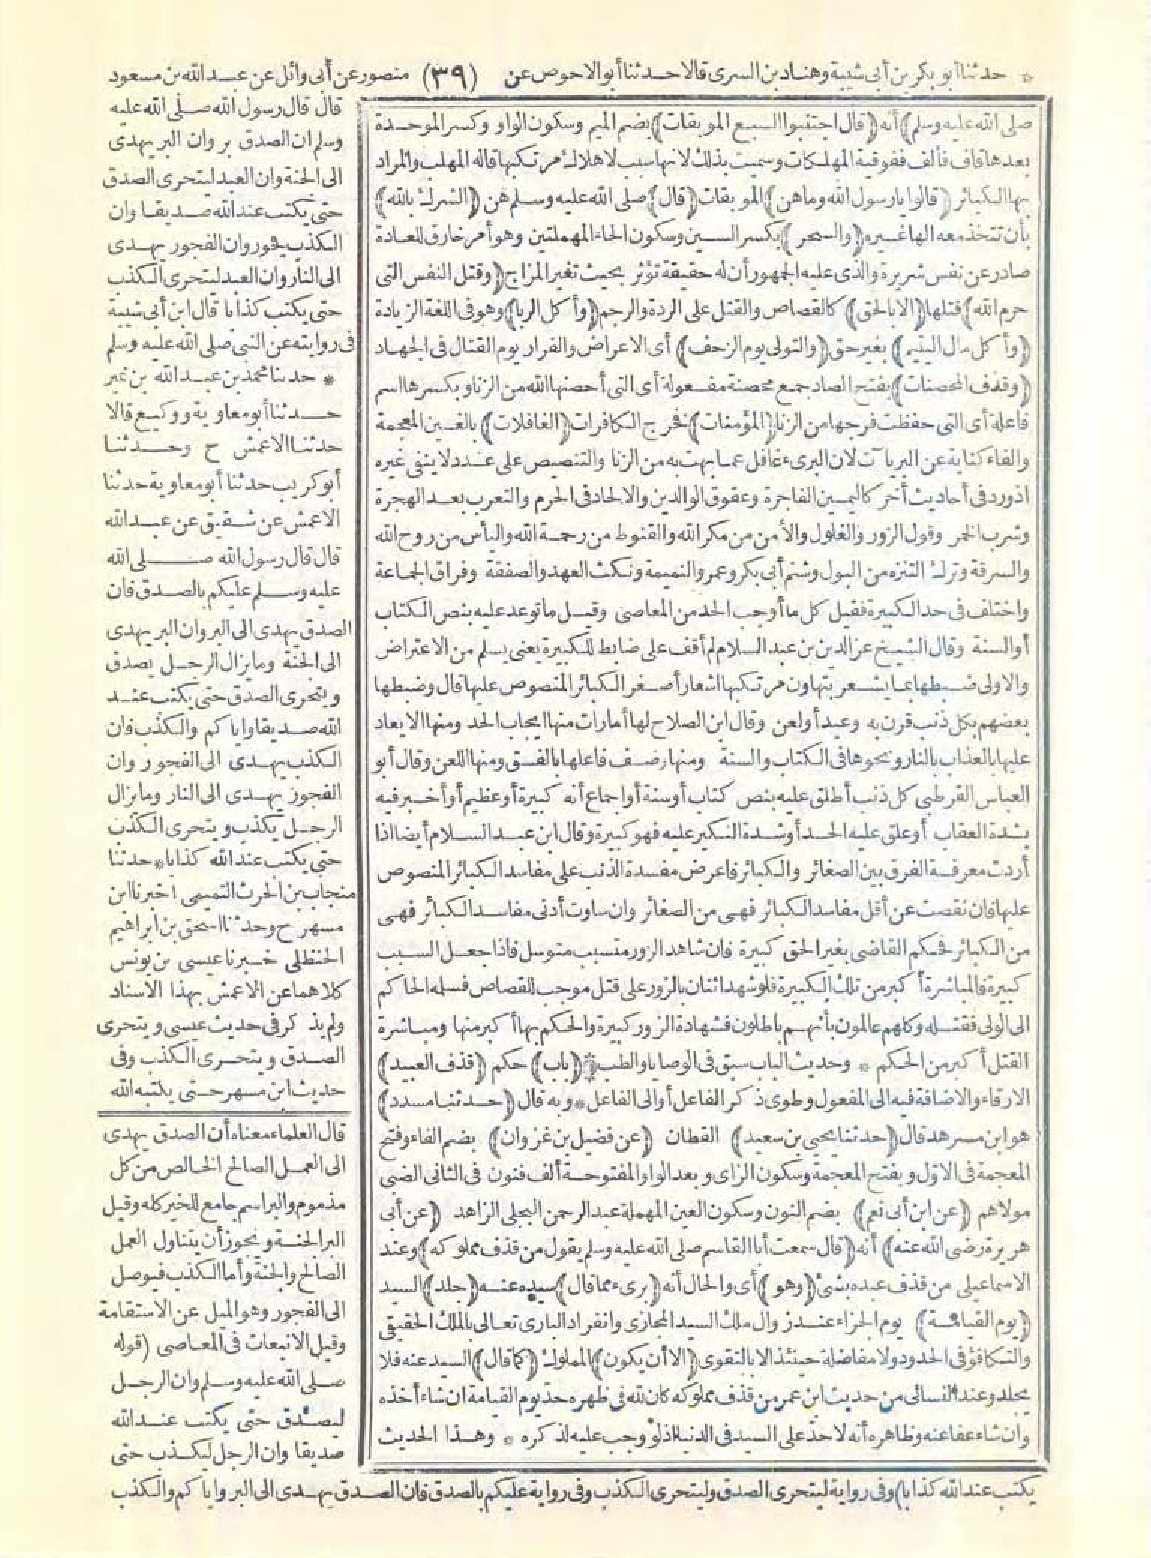 * حدثنا أبو بكر بن أبى شيبة وهناد بن السرى قالا حدثنا أبو الاحوص عن (٣٩) منصور عن أبى وائل عن عبد الله بن مسعود
صلى الله عليه وسلم) أنه (قال اجتنبوا السبع الموبقات) بضم الميم وسكون الواو وكسر الموحدة
بعدها قاف فألف ففوقية المهلكات وسميت بذلك لانها سبب لاهلاك مرتكبها قاله المهلب والمراد
بها الكبائر (قالوا يارسول الله وما هن) الموبقات (قال) صلى الله عليه وسلم هن (الشرك بالله)
بأن تتخذ معه الها غيره (والسحر) بكسر السين وسكون الحاء المهملتين وهو أمر خارق للعادة
صادر عن نفس شريرة والذى عليه الجمهور أن له حقيقة تؤثر بحيث تغير المزاج (وقتل النفس التى
حرم الله) قتلها (الا بالحق) كالقصاص والقتل على الردة والرجم (وأكل الربا) وهو فى اللغة الزيادة
(وأكل مال اليتيم) بغير حق (والتولى يوم الزحف) أى الاعراض والفرار يوم القتال فى الجهاد
(وقذف المحصنات) بفتح الصاد جمع محصنة مفعولة أى التى أحصنها الله من الزنا وبكسرها اسم
فاعلة أى التى حفظت فرجها من الزنا (المؤمنات) فخرج الكافرات (الغافلات) بالغين المعجمة
والفاء كناية عن البريات لان البرىء غافل عما بهت به من الزنا والتنصيص على عدد لا ينفى غيره
اذ ورد فى أحاديث أخر كاليمين الفاجرة وعقوق الوالدين والالحاد فى الحرم والتعرب بعد الهجرة
وشرب الخمر وقول الزور والغلول والأمن من مكر الله والقنوط من رحمة الله واليأس من روح الله
والسرقة وترك التنزه من البول وشتم أبى بكر وعمر والنميمة ونكث العهد والصفقة وفراق الجماعة
واختلف فى حد الكبيرة فقيل كل ما أوجب الحد من المعاصى وقيل ما توعد عليه بنص الكتاب
أو السنة وقال الشيخ عز الدين بن عبد السلام لم أقف على ضابط للكبيرة يعنى يسلم من الاعتراض
والاولى ضبطها بما يشعر بتهاون مرتكبها اشعار أصغر الكبائر المنصوص عليها قال وضبطها
بعضهم بكل ذنب قرن به وعيد أو لعن وقال ابن الصلاح لها أمارات منها ايجاب الحد ومنها الايعاد
عليها بالعذاب بالنار ونحوها فى الكتاب والسنة ومنها وصف فاعلها بالفسق ومنها اللعن وقال أبو
العباس القرطبى كل ذنب أطلق عليه بنص كتاب أو سنة أو اجماع أنه كبيرة أو عظيم أو أخبر فيه
بشدة العقاب أو علق عليه الحد أو شدة النكير عليه فهو كبيرة وقال ابن عبد السلام أيضا اذا
أردت معرفة الفرق بين الصغائر والكبائر فاعرض مفسدة الذنب على مفاسد الكبائر المنصوص
عليها فان نقصت عن أقل مفاسد الكبائر فهى من الصغائر وان ساوت أدنى مفاسد الكبائر فهى
من الكبائر فحكم القاضى بغير الحق كبيرة فان شاهد الزور متسبب متوسل فاذا جعل السبب
كبيرة فالمباشرة أكبر من تلك الكبيرة فلو شهد اثنان بالزور على قتل موجب للقصاص فسلمه الحاكم
الى الولى فقتله وكلهم عالمون بأنهم باطلون فشهادة الزور كبيرة والحكم بها أكبر منها ومباشرة
القتل أكبر من الحكم * وحديث الباب سبق فى الوصايا والطب * (باب) حكم (قذف العبيد)
الارقاء والاضافة فيه الى المفعول وطوى ذكر الفاعل أو الى الفاعل * وبه قال (حدثنا مسدد)
هو ابن مسرهد قال (حدثنا يحيى بن سعيد) القطان (عن فضيل بن غزوان) بضم الفاء وفتح
المعجمة فى الاول وبفتح المعجمة وسكون الزاى وبعد الواو المفتوحة ألف فنون فى الثانى الضبى
مولاهم (عن ابن أبى نعم) بضم النون وسكون العين المهملة عبد الرحمن البجلى الزاهد (عن أبى
هريرة رضى الله عنه) أنه (قال سمعت أبا القاسم صلى الله عليه وسلم يقول من قذف مملوكه) وعند
الاسماعيلى من قذف عبده بشئ (وهو) أى والحال أنه (برىء مما قال) سيده عنه (جلد) السيد
(يوم القيامة) يوم الجزاء عند زوال ملك السيد المجازى وانفراد البارى تعالى بالملك الحقيقى
والتكافؤ فى الحدود ولا مفاضلة حينئذ الا بالتقوى (الا أن يكون) المملوك (كما قال) السيد عنه فلا
يجلد وعند النسائى من حديث ابن عمر من قذف مملوكه كان لله فى ظهره حد يوم القيامة ان شاء أخذه
وان شاء عفا عنه وظاهره أنه لا حد على السيد فى الدنيا اذ لو وجب عليه لذكره * وهذا الحديث
قال قال رسول الله صلى الله عليه
وسلم ان الصدق بر وان البر يهدى
الى الجنة وان العبد ليتحرى الصدق
حتى يكتب عند الله صديقا وان
الكذب فجور وان الفجور يهدى
الى النار وان العبد ليتحرى الكذب
حتى يكتب كذابا قال ابن أبى شيبة
فى روايته عن النبى صلى الله عليه وسلم
* حدثنا محمد بن عبد الله بن نمير
حدثنا أبو معاوية ووكيع قالا
حدثنا الاعمش ح وحدثنا
أبو كريب حدثنا أبو معاوية حدثنا
الاعمش عن شقيق عن عبد الله
قال قال رسول الله صلى الله
عليه وسلم عليكم بالصدق فان
الصدق يهدى الى البر وان البر يهدى
الى الجنة وما يزال الرجل يصدق
ويتحرى الصدق حتى يكتب عند
الله صديقا واياكم والكذب فان
الكذب يهدى الى الفجور وان
الفجور يهدى الى النار وما يزال
الرجل يكذب ويتحرى الكذب
حتى يكتب عند الله كذابا * حدثنا
منجاب بن الحرث التميمى اخبرنا ابن
مسهر ح وحدثنا اسحق بن ابراهيم
الحنظلى خبرنا عيسى بن يونس
كلاهما عن الاعمش بهذا الاسناد
ولم يذكر فى حديث عيسى ويتحرى
الصدق ويتحرى الكذب وفى
حديث ابن مسهر حتى يكتبه الله
قال العلماء معناه أن الصدق يهدى
الى العمل الصالح الخالص من كل
مذموم والبر اسم جامع للخير كله وقيل
البر الجنة ويجوز أن يتناول العمل
الصالح والجنة وأما الكذب فيوصل
الى الفجور وهو الميل عن الاستقامة
وقيل الانبعاث فى المعاصى (قوله
صلى الله عليه وسلم وان الرجل
ليصدق حتى يكتب عند الله
صديقا وان الرجل ليكذب حتى
يكتب عند الله كذابا) وفى رواية ليتحرى الصدق وليتحرى الكذب وفى رواية عليكم بالصدق فان الصدق يهدى الى البر واياكم والكذب